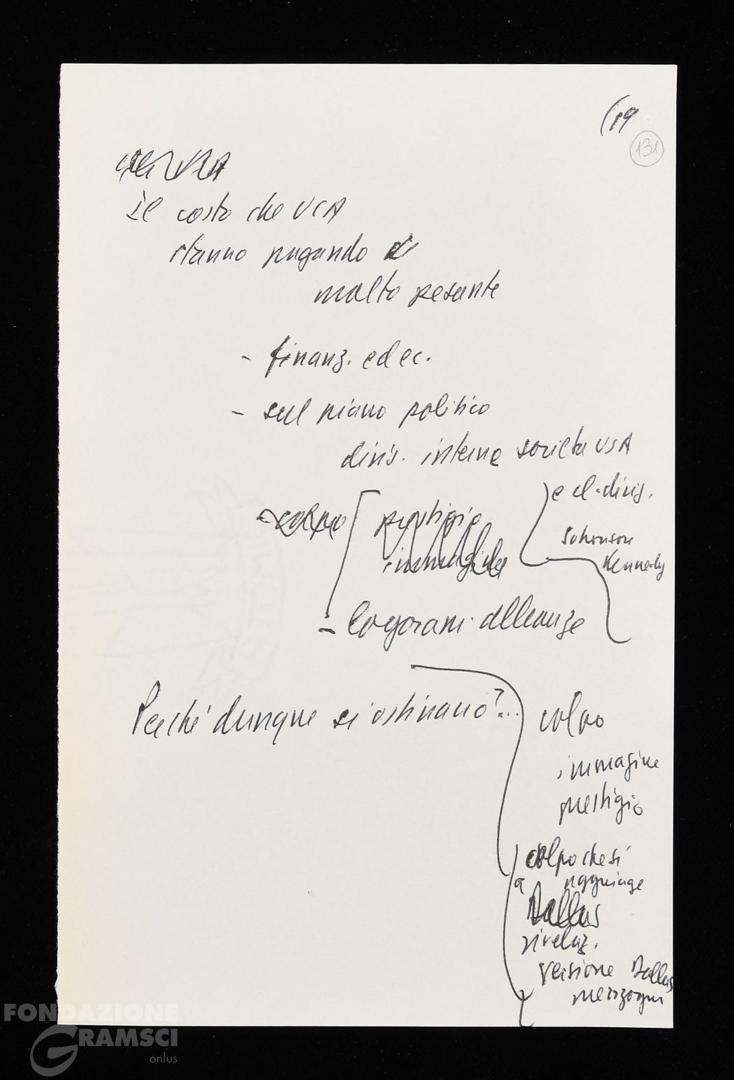 (19
131
Il costo che USA
stanno pagando è
molto pesante
- finanz. ed ec.
- sul piano politico
divis. interne società USA
e cl. dirig.
Johonson
Kennedy
- colpo prestigio
immagine
- logoram. alleanze
Perché dunque si ostinano?...
colpo
immagine
prestigio
colpo che si
aggiunge
a Dallas
rivelaz.
versione Dallas
menzogna
FONDAZIONE
GRAMSCI
onlus